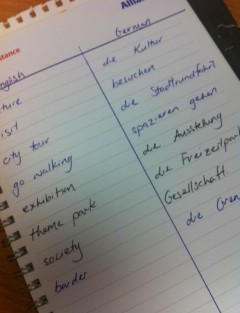 Allia
stance
nglish German
ture die Kultur
isit besuchen
city tour die Stadtrundfahrt
go walking spazieren gehen
exhibition die Ausstellung
theme park die Freizeitpark
society Gesellschaft
border die Gren